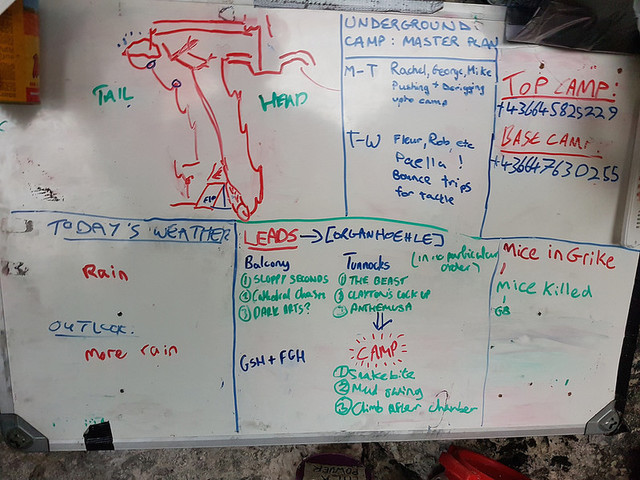 TAIL
HEAD
UNDERGROUND:
CAMP: MASTER PLAN
M-T Rachel, George, Mike
Pushing + Derigging
upto camp
T-W Fleur, Rob, etc
Paella !
Bounce trips
for tackle
TOP CAMP:
+436645825229
BASE CAMP:
+436647630255
TODAY'S WEATHER
Rain
OUTLOOK:
More rain
LEADS → [ORGANHOEHLE]
(in no particular order)
Balcony
① SLOPPY SECONDS
② Cathedral Chasm
③ DARK ARTS?
GSH + FGH
Tunnocks
① THE BEAST
② CLAYTON'S COCK UP
③ ANTHEMUSA
CAMP
① Snakebite
② Mud swing
③ Climb after chamber
Mice in Grike
Mice Killed
GB